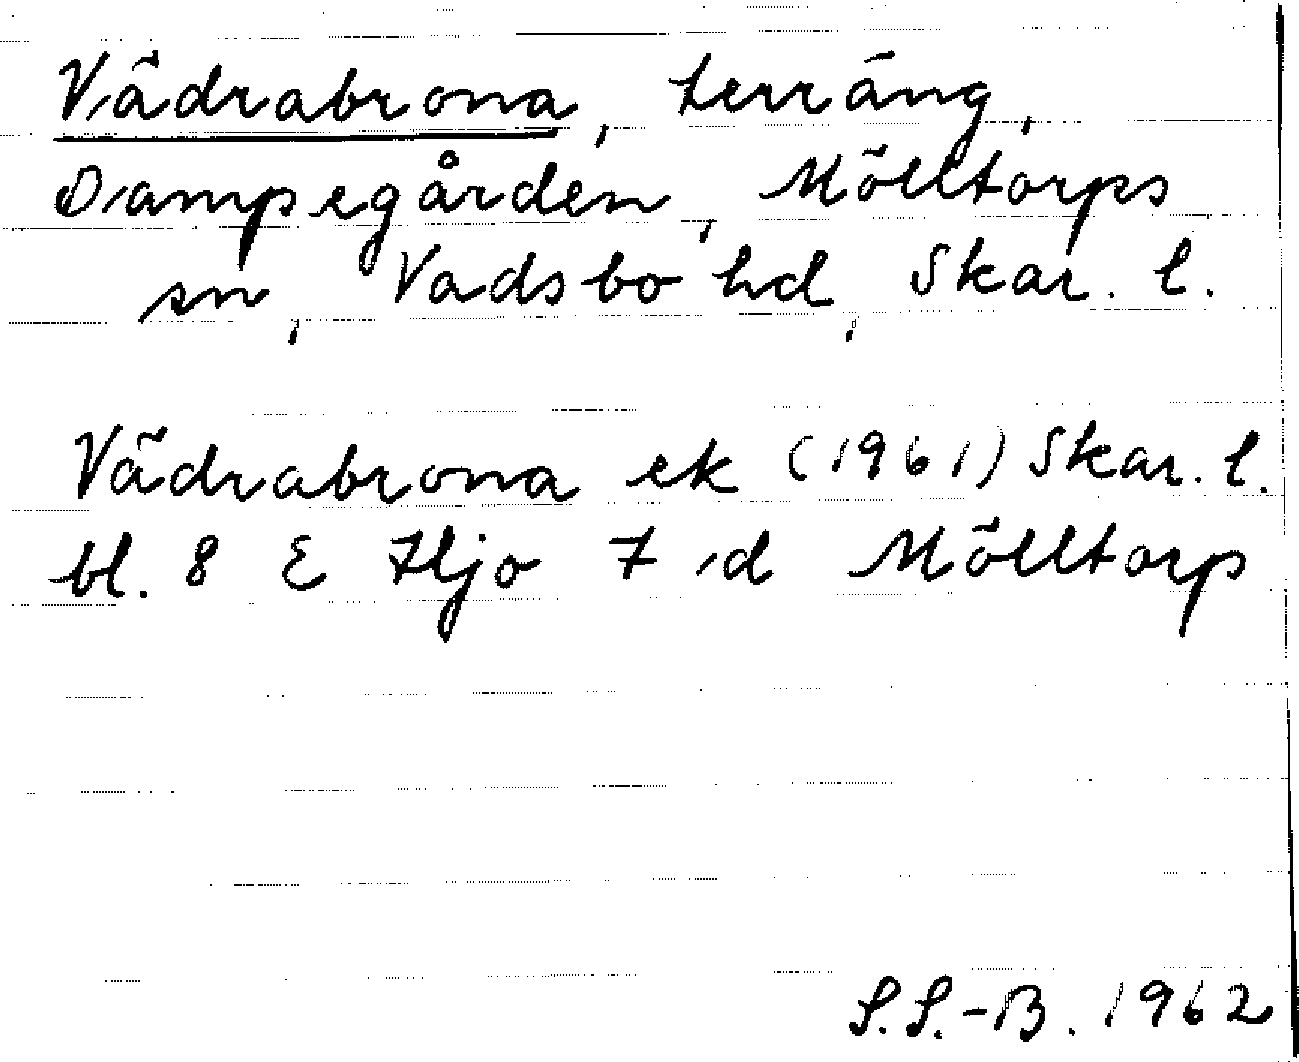 Vädrabrona, terräng,
Dampegården, Mölltorps
sn, Vadsbo hd, Skar. l.
Vädrabrona ek (1961) Skar. l.
bl. 8 E Hjo 7 d Mölltorp
S.S.-B. 1962